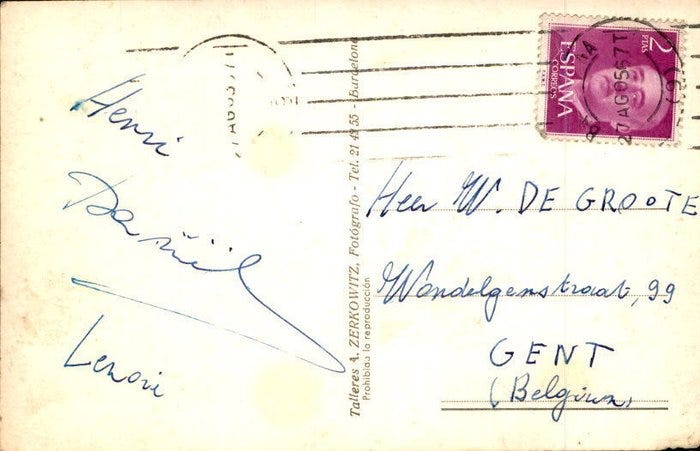 Henri
Daniël
Lenoir
Talleres A. ZERKOWITZ, Fotógrafo - Tel. 21 49 55 - Barcelona
Prohibida la reproducción
2 PTAS
ESPAÑA
CORREOS
Heer W. DE GROOTE
Wondelgemstraat, 99
GENT
(Belgium)